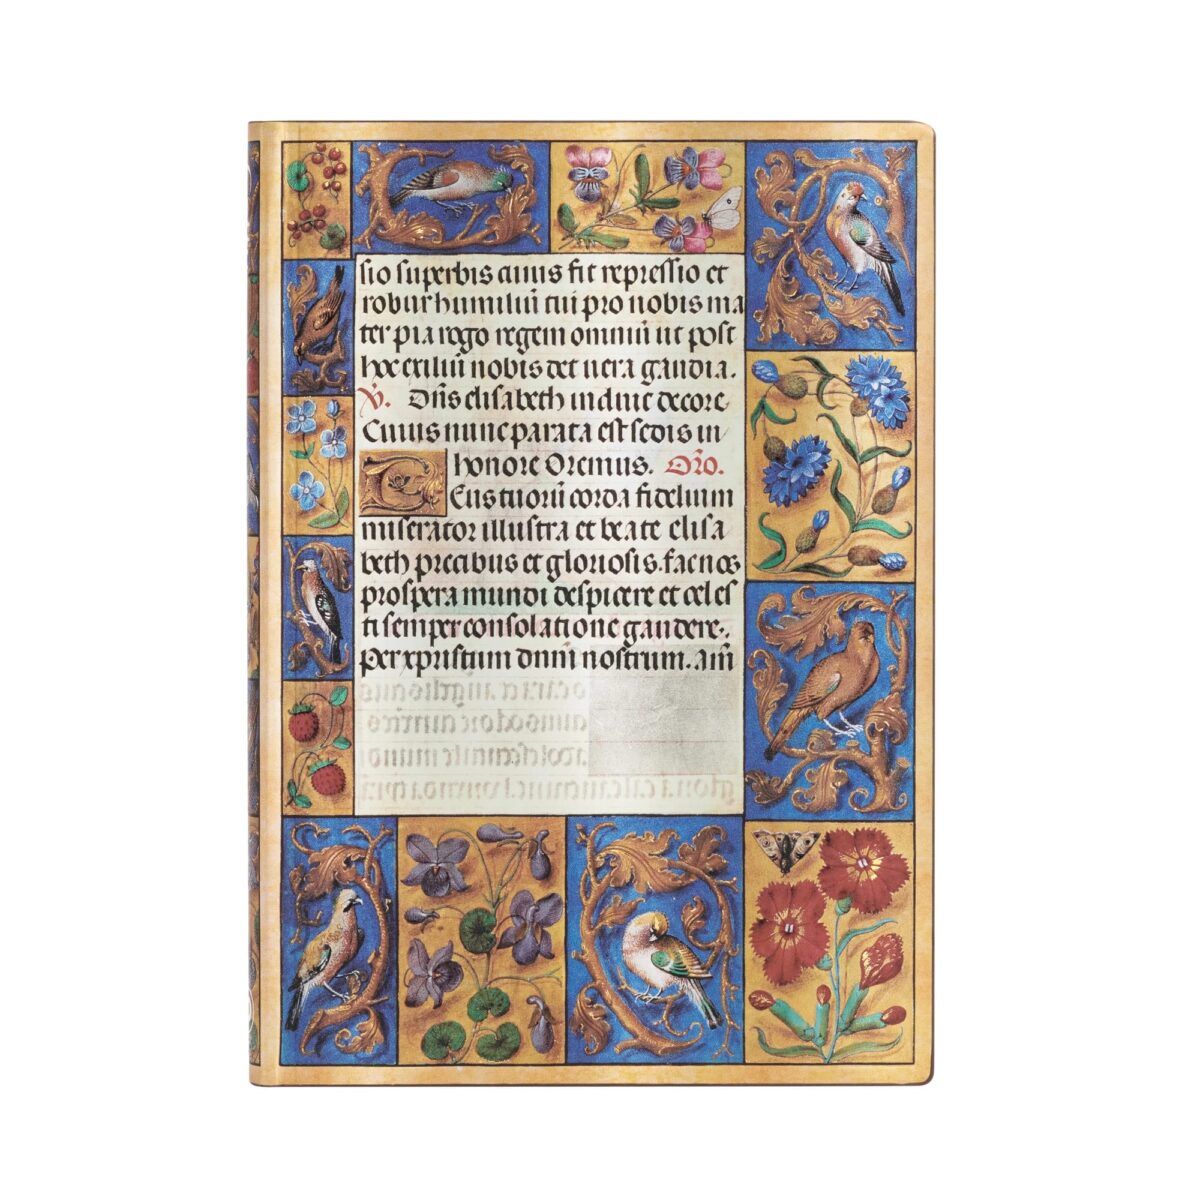 sio superbis cuius fit repressio et
robur humiliū tui pro nobis ma
ter pia rogo regem omniū ut post
hoc exiliū nobis det uera gaudia.
V. Dn̄s elisabeth induit decore
Cuius nunc parata est sedis in
honore Oremus. Oro.
Deus tuorū corda fidelium
miserator illustra et beate elisa
beth precibus et gloriosis. fac nos
prospera mundi despicere et celes
ti semper consolatione gaudere.
Per xpristum dnm nostrum. am̄